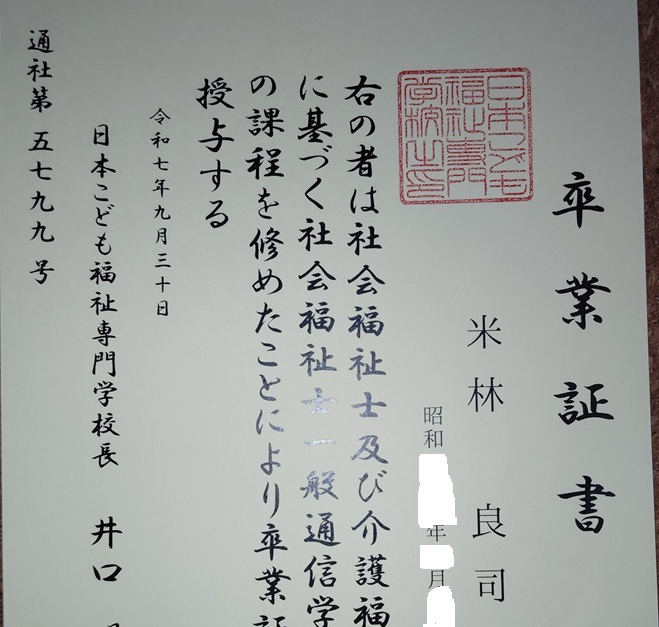 卒業証書
日本こども福祉専門学校之印
米林 良司
昭和 年 月
右の者は社会福祉士及び介護福
に基づく社会福祉士一般通信学
の課程を修めたことにより卒業証
授与する
令和七年九月三十日
日本こども福祉専門学校長 井口
通社第五七九九号